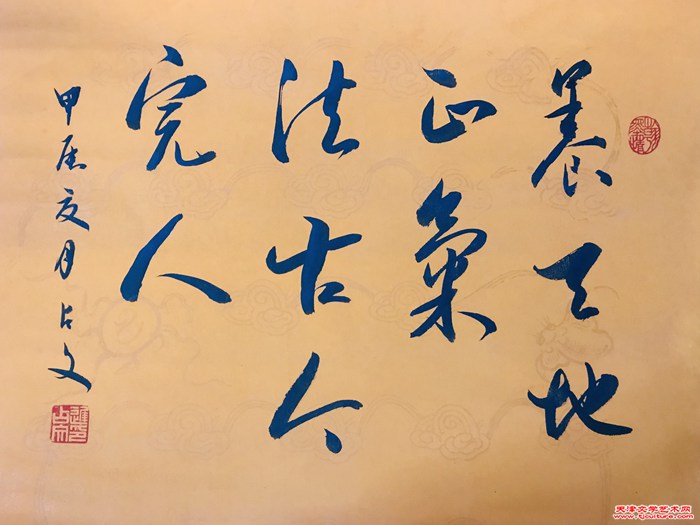 養天地
正氣
法古今
完人
甲辰夏月占文
天津文学艺术网
www.tjculture.com